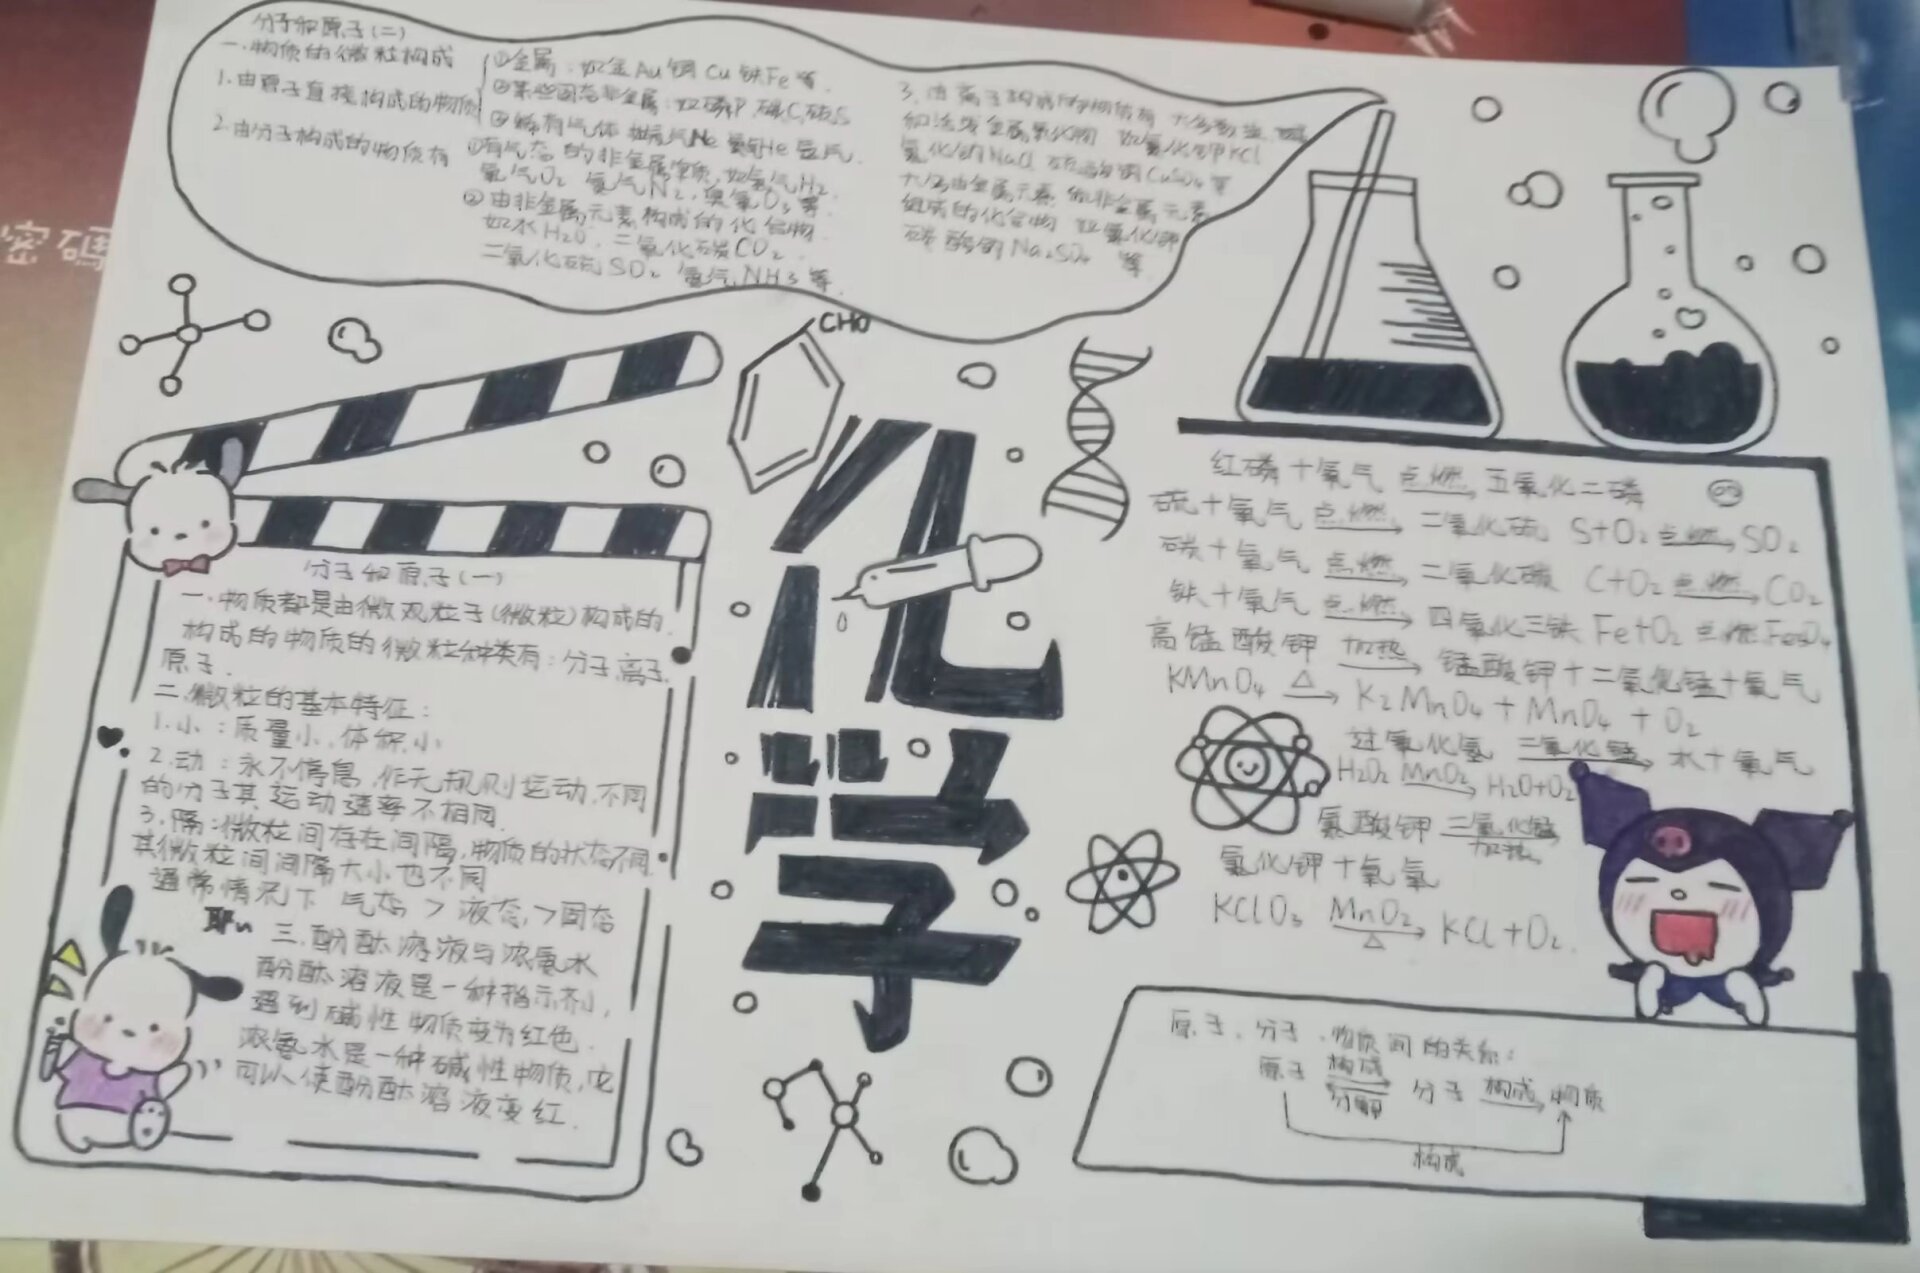 分子和原子(二)
一.物质的微粒构成
1.由原子直接构成的物质
①金属:如金Au 铜Cu 铁Fe 等.
②某些固态非金属:如磷P 碳C,硫S
③稀有气体 如氖气Ne 氦气He 氩气.
2.由分子构成的物质有
①有气态的非金属单质,如氢气H2.
氧气O2 氮气N2,臭氧O3等.
②由非金属元素构成的化合物.
如水H2O,二氧化碳CO2.
二氧化硫SO2 氨气NH3等.
3.由离子构成的物质有 大多数盐 碱
和活泼金属氧化物 如氯化钾KCl
氯化钠NaCl 硫酸铜CuSO4等
大多由金属元素和非金属元素
组成的化合物 如氯化钾
硫酸钠Na2SO4 等.
CHO
化学
分子和原子(一)
一.物质都是由微观粒子(微粒)构成的.
构成的物质的微粒种类有:分子.离子.
原子.
二.微粒的基本特征:
1.小:质量小,体积小
2.动:永不停息,作无规则运动,不同
的分子其运动速率不相同.
3.隔:微粒间存在间隔,物质的状态不同.
其微粒间间隔大小也不同
通常情况下 气态>液态>固态
三.酚酞溶液与浓氨水
酚酞溶液是一种指示剂,
遇到碱性物质变为红色.
浓氨水是一种碱性物质,它
可以使酚酞溶液变红.
红磷+氧气 点燃→ 五氧化二磷
硫+氧气 点燃→ 二氧化硫 S+O2 点燃→ SO2
碳+氧气 点燃→ 二氧化碳 C+O2 点燃→ CO2
铁+氧气 点燃→ 四氧化三铁 Fe+O2 点燃 Fe3O4
高锰酸钾 加热→ 锰酸钾+二氧化锰+氧气
KMnO4 △→ K2MnO4+MnO4+O2
过氧化氢 二氧化锰→ 水+氧气
H2O2 MnO2→ H2O+O2
氯酸钾 二氧化锰 加热→
氯化钾+氧气
KClO3 MnO2 △→ KCl+O2.
原子、分子、物质间的关系:
原子 构成 分解 分子 构成→ 物质
构成